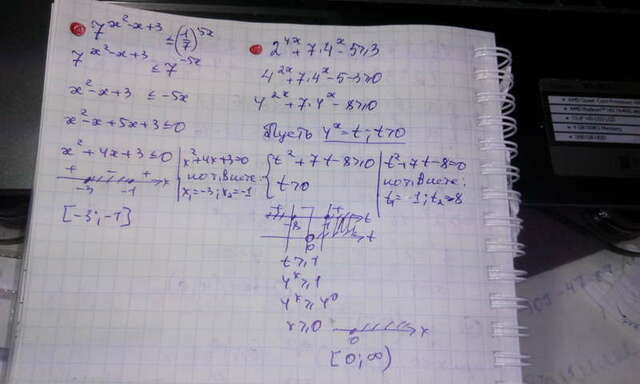 7^(x²-x+3) ≤ (1/7)^(5x)
7^(x²-x+3) ≤ 7^(-5x)
x²-x+3 ≤ -5x
x²-x+5x+3≤0
x²+4x+3≤0
x²+4x+3=0
по т. Виета:
x₁=-3; x₂=-1
+ - + x
-3 -1
[-3;-1]
2^(4x)+7·4^x-5≥3
4^(2x)+7·4^x-5-3≥0
4^(2x)+7·4^x-8≥0
Пусть 4^x=t; t>0
t²+7t-8≥0
t>0
t²+7t-8=0
по т. Виета:
+ - + t
-8 1
0 t
t≥1
4^x≥1
4^x≥4^0
x≥0
0 x
[0;∞)